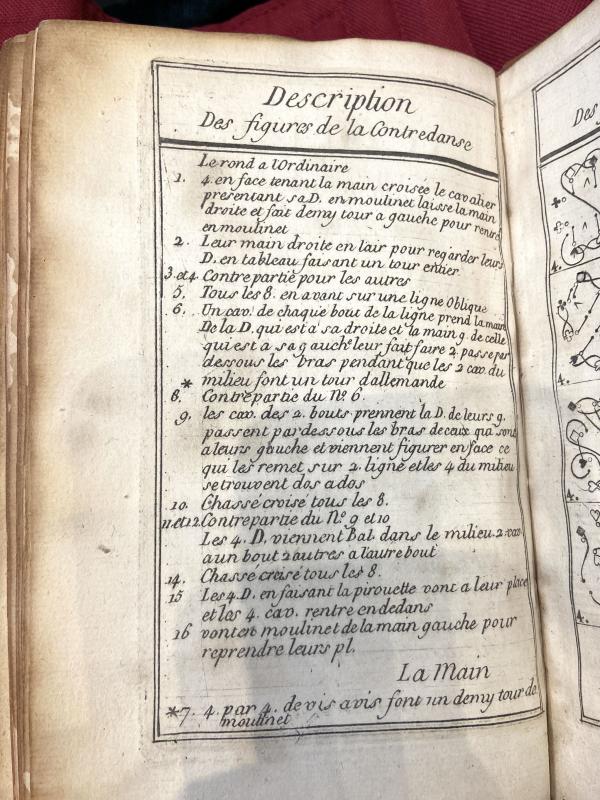 Description
Des figures de la Contredanse
Le rond a l'Ordinaire
1. 4. en face tenant la main croisée le cavalier
presentant sa D. en moulinet laisse la main
droite et fait demy tour a gauche pour rentre
en moulinet
2. Leur main droite en l'air pour regarder leurs
D. en tableau faisant un tour entier.
3 et 4. Contre partie pour les autres
5. Tous les 8. en avant sur une ligne Oblique
6. Un cav. de chaque bout de la ligne prend la main
De la D. qui est a sa droite et la main g. de celle
qui est a sa gauch.e leur fait faire 2. passe par
dessous les bras pendant que les 2 cav. du
* milieu font un tour d'allemande
8. Contrepartie du N.o 6.
9. les cav. des 2. bouts prennent la D. de leurs g.
passent par dessous les bras de ceux qui sont
a leurs gauche et viennent figurer en face ce
qui les remet sur 2. ligne et les 4 du milieu
se trouvent dos a dos
10. Chassé croisé tous les 8.
11 et 12. Contrepartie du N.o 9 et 10
Les 4. D. viennent Bal. dans le milieu. 2. cav.
a un bout 2 autres a l'autre bout
14. Chassé croisé tous les 8.
15 Les 4. D. en faisant la pirouette vont a leur place
et les 4. cav. rentre en dedans
16 vont en moulinet de la main gauche pour
reprendre leurs pl.
La Main
*7. 4. par 4. de vis a vis font un demy tour de
moulinet
Des
4.
4.
4.
4.